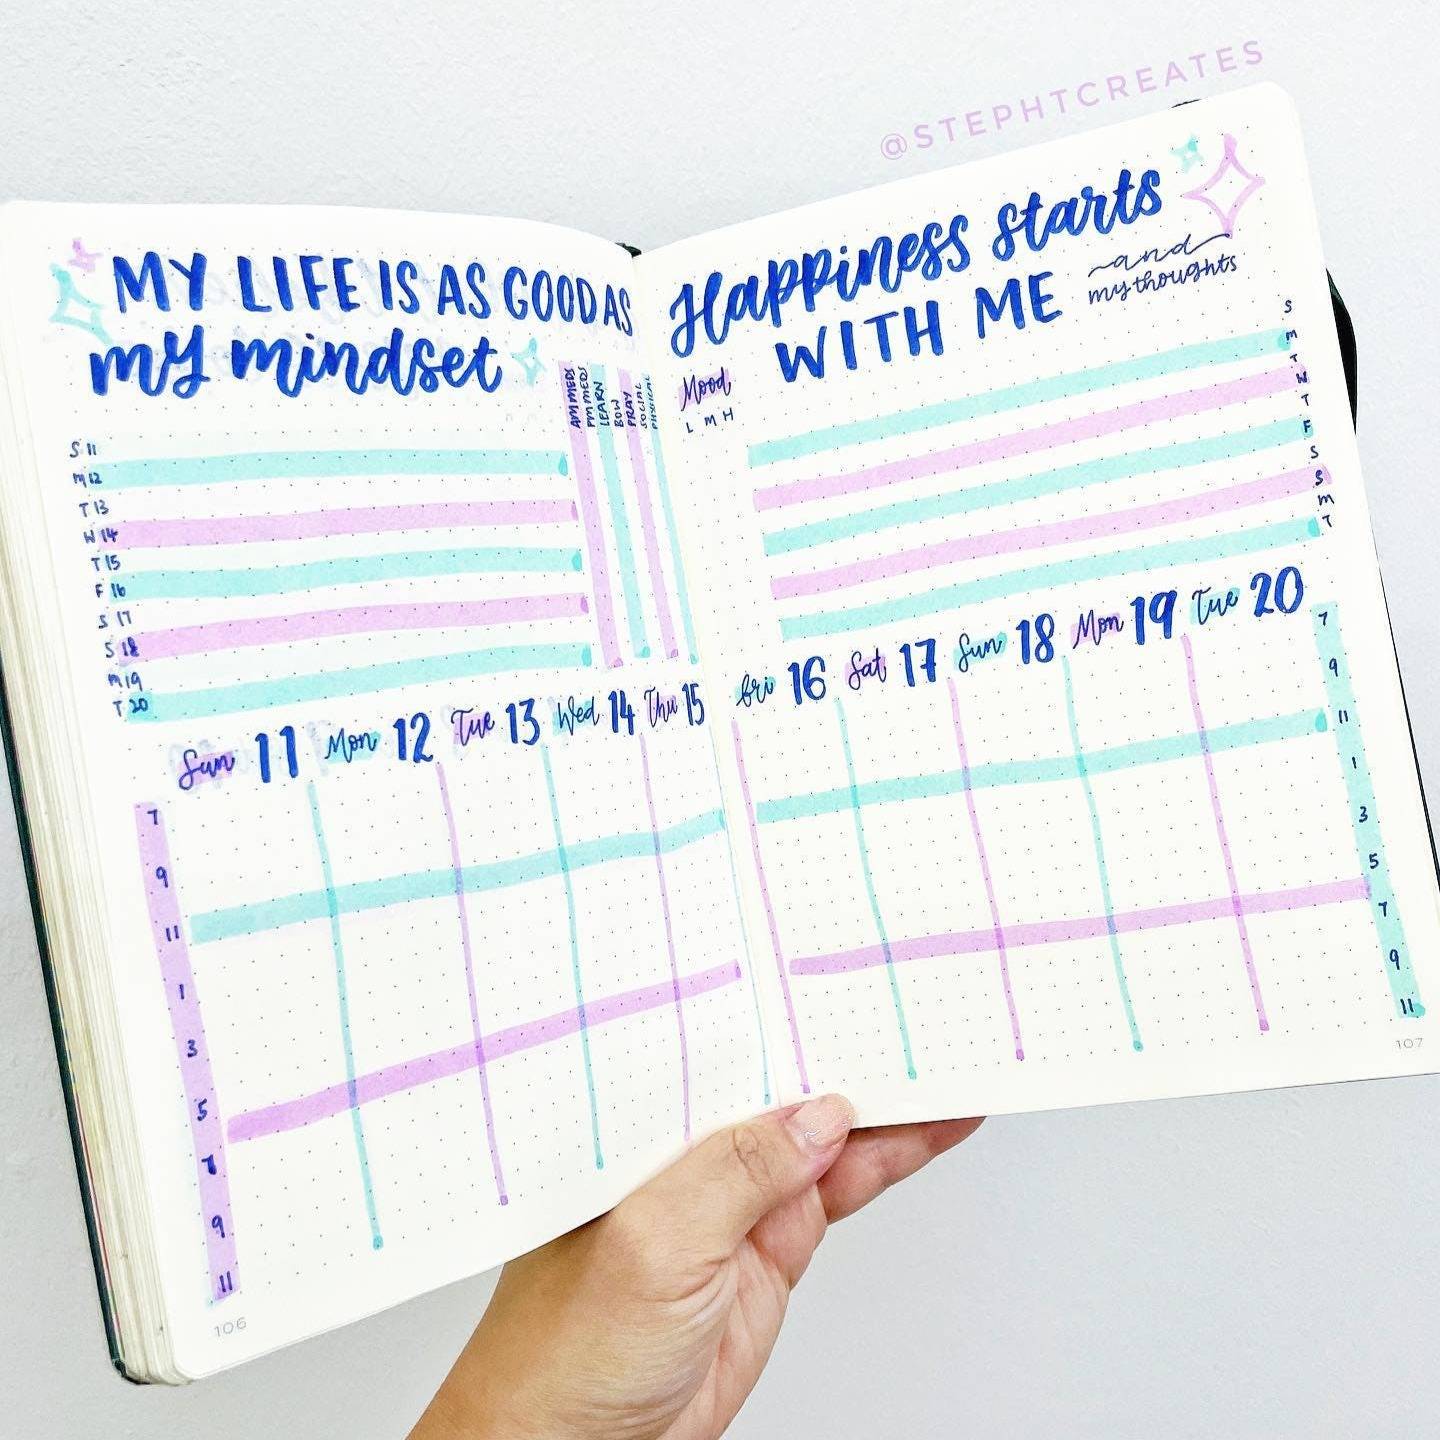 @STEPHTCREATES
MY LIFE IS AS GOOD AS
my mindset
AM MEDS
PM MEDS
LEARN
BOW
PRAY
SOCIAL
PHYSICAL
S 11
M 12
T 13
W 14
T 15
F 16
S 17
S 18
M 19
T 20
Sun 11 Mon 12 Tue 13 Wed 14 Thu 15
7
9
11
1
3
5
7
9
11
106
Happiness starts
WITH ME and
my thoughts
Mood
L M H
S
M
T
W
T
F
S
S
M
T
Fri 16 Sat 17 Sun 18 Mon 19 Tue 20
7
9
11
1
3
5
7
9
11
107